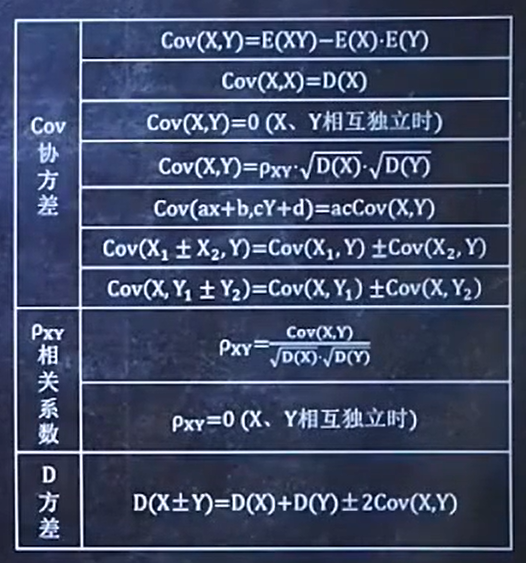 Cov
协
方
差
Cov(X,Y)=E(XY)−E(X)·E(Y)
Cov(X,X)=D(X)
Cov(X,Y)=0 (X、Y相互独立时)
Cov(X,Y)=ρXY·√D(X)·√D(Y)
Cov(ax+b,cY+d)=acCov(X,Y)
Cov(X₁ ± X₂, Y)=Cov(X₁, Y) ±Cov(X₂, Y)
Cov(X, Y₁ ± Y₂)=Cov(X, Y₁) ±Cov(X, Y₂)
ρXY
相
关
系
数
ρXY=Cov(X,Y)/√D(X)·√D(Y)
ρXY=0 (X、Y相互独立时)
D
方
差
D(X±Y)=D(X)+D(Y)±2Cov(X,Y)